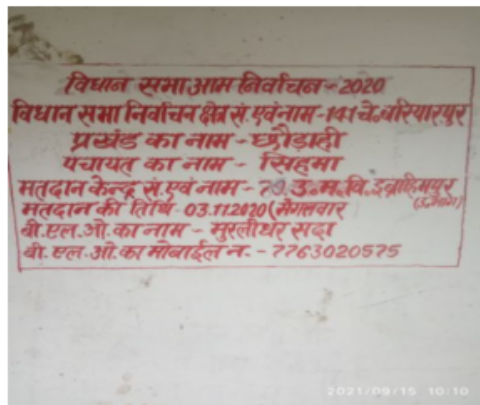 विधान सभा आम निर्वाचन - 2020
विधान सभा निर्वाचन क्षेत्र सं. एवं नाम - 141 चे० बरियारपुर
प्रखंड का नाम - छौड़ाही
पंचायत का नाम - सिहमा
मतदान केन्द्र सं. एवं नाम - उ० म० वि. इब्राहिमपुर
मतदान की तिथि - 03.11.2020 (मंगलवार
बी. एल. ओ. का नाम - मुरलीधर सदा
बी. एल. ओ. का मोबाईल न. - 7763020575
2021/09/15 10:10